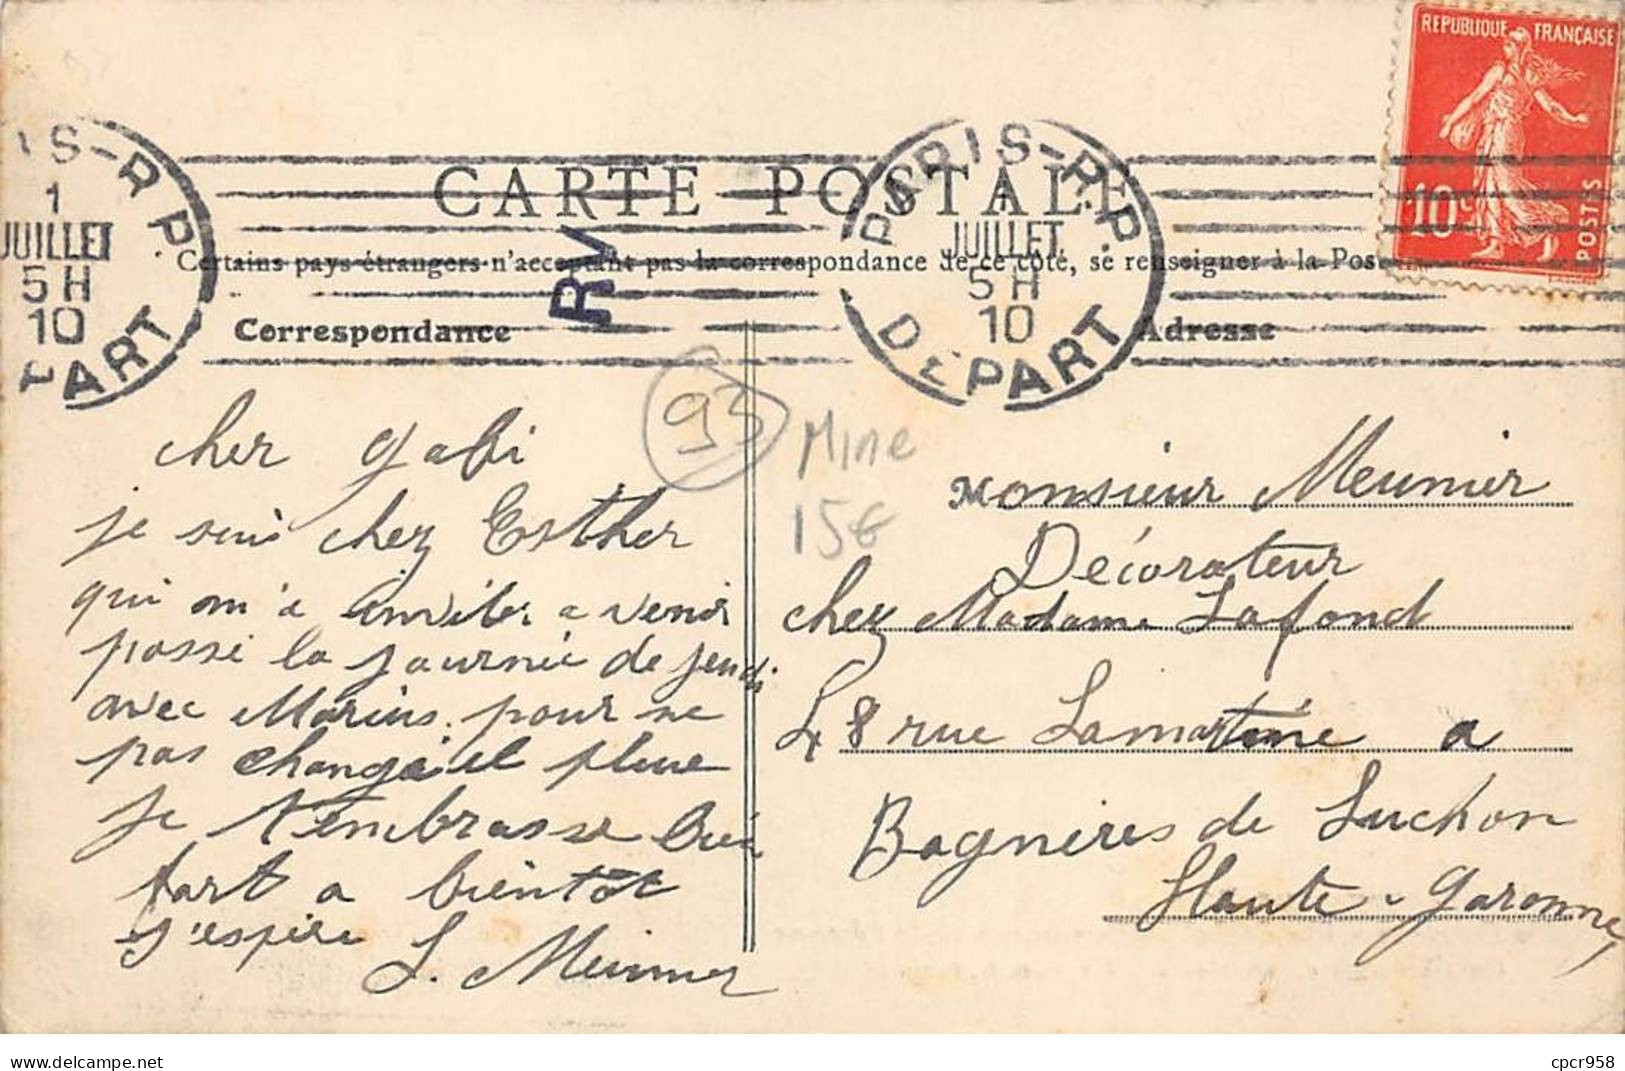 REPUBLIQUE FRANÇAISE
10c
POSTES
IS-R.P.
1
JUILLET
5 H
10
PART
PARIS-R.P.
1
JUILLET
5 H
10
DEPART
CARTE POSTALE
Certains pays étrangers n'acceptant pas la correspondance de ce côté, se renseigner à la Pos
RV
Correspondance
Adresse
93
Mine
15€
cher Gabi
je suis chez Esther
qui m'a inviter a venir
passé la journée de jeudi
avec Marius. pour ne
pas changé il pleue
je t'embrasse bien
fort a bientôt
j'espère
L. Meunier
Monsieur Meunier
Décorateur
chez Madame Lafond
48 rue Lamartine a
Bagnères de Luchon
Haute-Garonne
Visit Delcampe.net to learn more
cpcr958